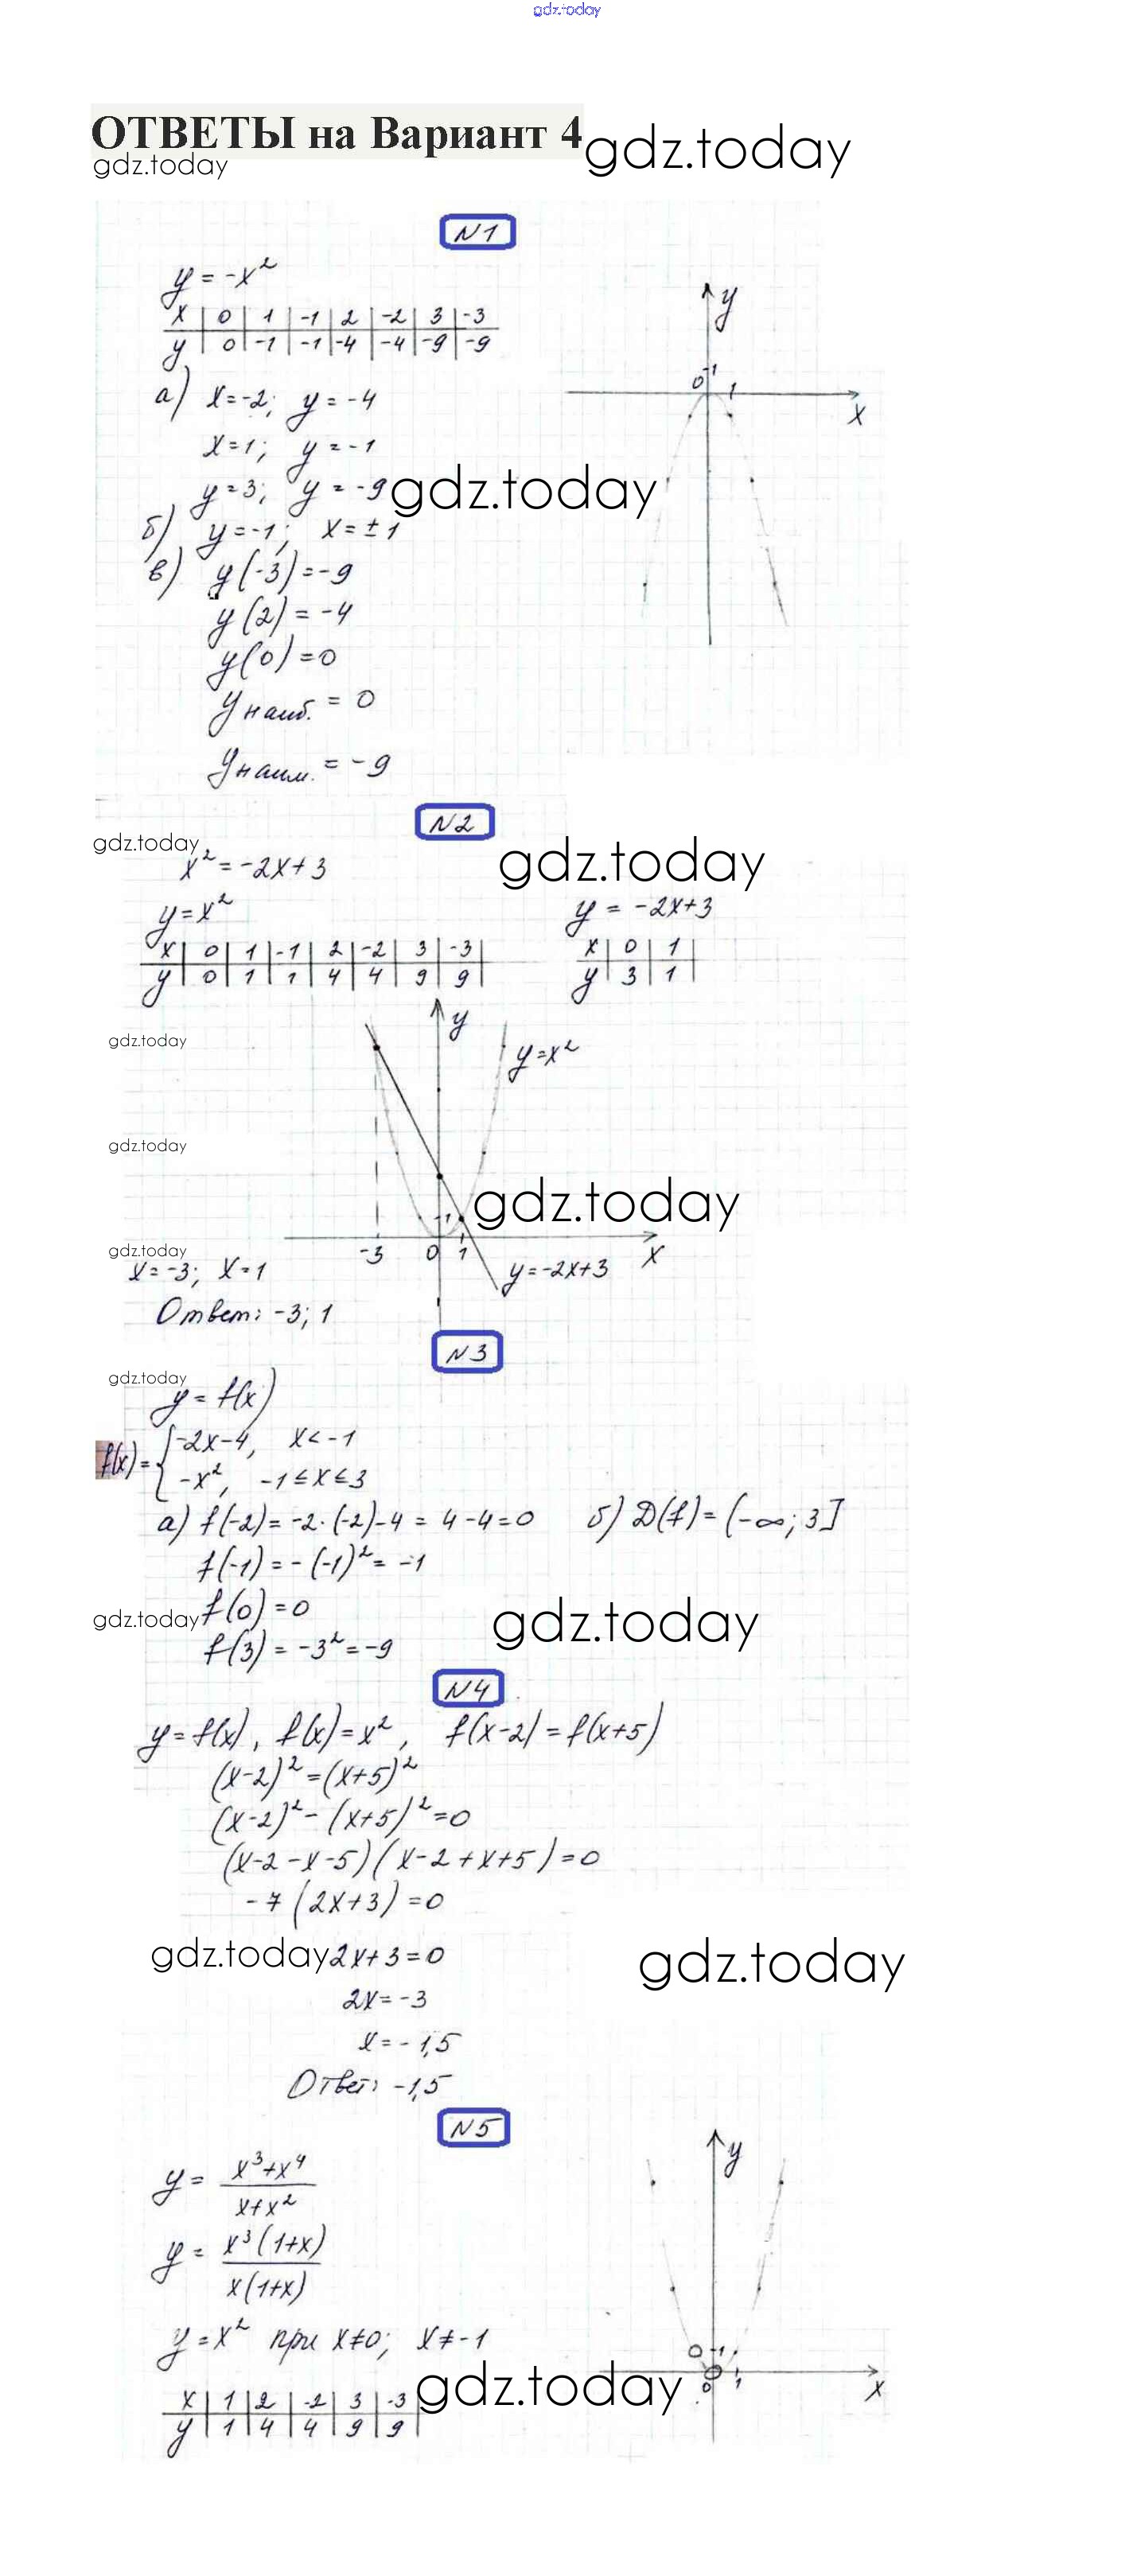 gdz.today
ОТВЕТЫ на Вариант 4
gdz.today
gdz.today
N1
y = -x²
x | 0 | 1 | -1 | 2 | -2 | 3 | -3
y | 0 | -1 | -1 | -4 | -4 | -9 | -9
y
0 1 1
x
а) x=-2; y = -4
x=1; y = -1
y=3; y = -9
gdz.today
б) y=-1; x=±1
в) y(-3)=-9
y(2)=-4
y(0)=0
y наиб. = 0
y наим. = -9
N2
gdz.today
gdz.today
x²=-2x+3
y=x²
y = -2x+3
x | 0 | 1 | -1 | 2 | -2 | 3 | -3 |
y | 0 | 1 | 1 | 4 | 4 | 9 | 9 |
x | 0 | 1 |
y | 3 | 1 |
y
gdz.today
y=x²
gdz.today
gdz.today
1
-3 0 1 x
gdz.today
y=-2x+3
x=-3; x=1
Ответ: -3; 1
N3
gdz.today
y= f(x)
f(x)= { -2x-4, x<-1
-x², -1≤x≤3
а) f(-2)=-2·(-2)-4= 4-4=0
б) D(f)=(-∞; 3]
f(-1)=-(-1)²=-1
f(0)=0
gdz.today
gdz.today
f(3)=-3²=-9
N4
y=f(x), f(x)=x², f(x-2)=f(x+5)
(x-2)²=(x+5)²
(x-2)²-(x+5)²=0
(x-2-x-5)(x-2+x+5)=0
-7(2x+3)=0
gdz.today
2x+3=0
gdz.today
2x=-3
x=-1,5
Ответ: -1,5
N5
y = x³+x⁴ / x+x²
y = x³(1+x) / x(1+x)
y=x² при x≠0; x≠-1
x | 1 | 2 | -2 | 3 | -3
y | 1 | 4 | 4 | 9 | 9 |
gdz.today
y
0 1
0 1
x